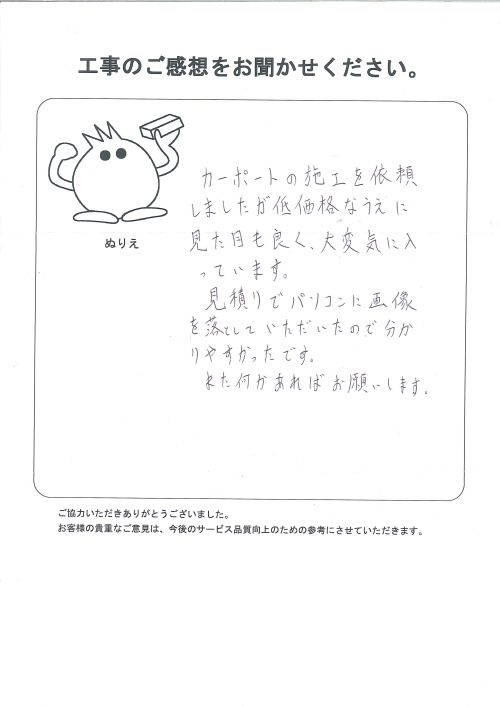 工事のご感想をお聞かせください。
ぬりえ
カーポートの施工を依頼
しましたが低価格なうえに
見た目も良く、大変気に入
っています。
見積りでパソコンに画像
を落としていただいたので分か
りやすかったです。
また何かあればお願いします。
ご協力いただきありがとうございました。
お客様の貴重なご意見は、今後のサービス品質向上のための参考にさせていただきます。